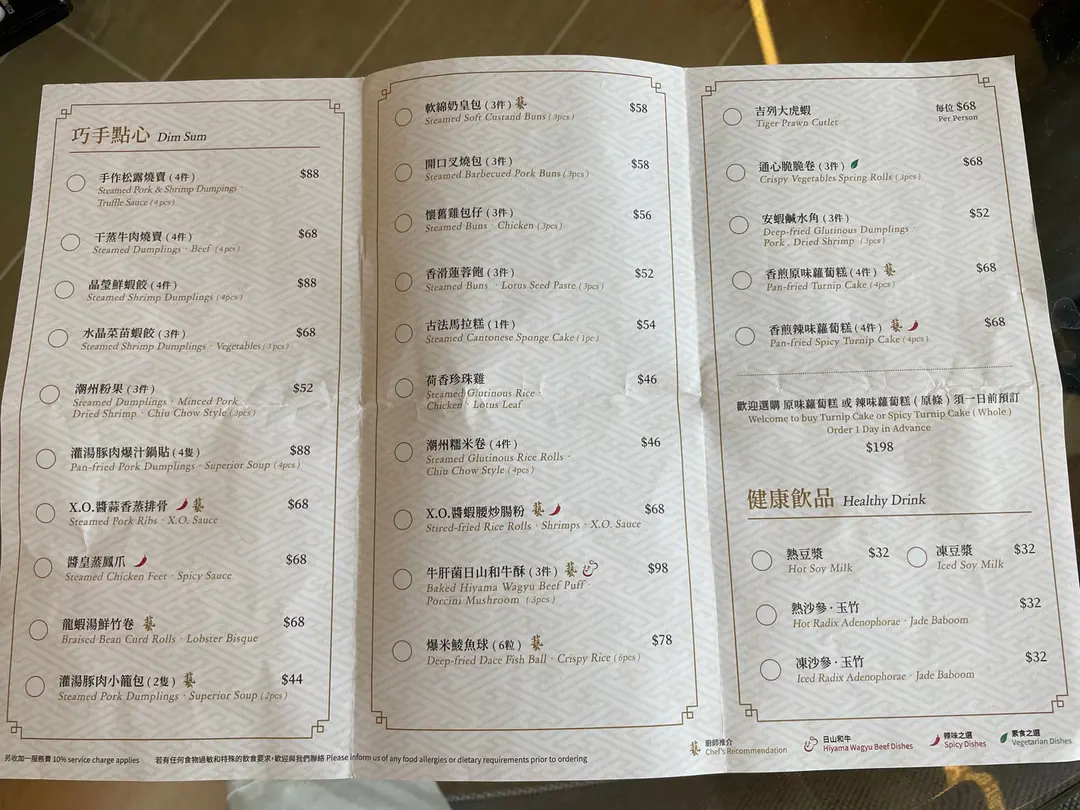 巧手點心 Dim Sum
手作松露燒賣 (4件) $88
Steamed Pork & Shrimp Dumpings ·
Truffle Sauce (4pcs)
干蒸牛肉燒賣 (4件) $68
Steamed Dumplings · Beef (4pcs)
晶瑩鮮蝦餃 (4件) $88
Steamed Shrimp Dumplings (4pcs)
水晶菜苗蝦餃 (3件) $68
Steamed Shrimp Dumplings · Vegetables (3pcs)
潮州粉果 (3件) $52
Steamed Dumplings · Minced Pork ·
Dried Shrimp · Chiu Chow Style (3pcs)
灌湯豚肉爆汁鍋貼 (4隻) $88
Pan-fried Pork Dumplings · Superior Soup (4pcs)
X.O.醬蒜香蒸排骨 藝 $68
Steamed Pork Ribs · X.O. Sauce
醬皇蒸鳳爪 $68
Steamed Chicken Feet · Spicy Sauce
龍蝦湯鮮竹卷 藝 $68
Braised Bean Curd Rolls · Lobster Bisque
灌湯豚肉小籠包 (2隻) 藝 $44
Steamed Pork Dumplings · Superior Soup (2pcs)
軟綿奶皇包 (3件) 藝 $58
Steamed Soft Custand Buns (3pcs)
開口叉燒包 (3件) $58
Steamed Barbecued Pork Buns (3pcs)
懷舊雞包仔 (3件) $56
Steamed Buns · Chicken (3pcs)
香滑蓮蓉飽 (3件) $52
Steamed Buns · Lotus Seed Paste (3pcs)
古法馬拉糕 (1件) $54
Steamed Cantonese Sponge Cake (1pc)
荷香珍珠雞 $46
Steamed Glutinous Rice ·
Chicken · Lotus Leaf
潮州糯米卷 (4件) $46
Steamed Glutinous Rice Rolls ·
Chiu Chow Style (4pcs)
X.O.醬蝦腰炒腸粉 藝 $68
Stired-fried Rice Rolls · Shrimps · X.O. Sauce
牛肝菌日山和牛酥 (3件) 藝 $98
Baked Hiyama Wagyu Beef Puff ·
Porcini Mushroom (3pcs)
爆米鯪魚球 (6粒) 藝 $78
Deep-fried Dace Fish Ball · Crispy Rice (6pcs)
吉列大虎蝦 每位 $68
Tiger Prawn Cutlet Per Person
通心脆脆卷 (3件) $68
Crispy Vegetables Spring Rolls (3pcs)
安蝦鹹水角 (3件) $52
Deep-fried Glutinous Dumplings ·
Pork . Dried Shrimp (3pcs)
香煎原味蘿蔔糕 (4件) 藝 $68
Pan-fried Turnip Cake (4pcs)
香煎辣味蘿蔔糕 (4件) 藝 $68
Pan-fried Spicy Turnip Cake (4pcs)
歡迎選購 原味蘿蔔糕 或 辣味蘿蔔糕 ( 原條 ) 須一日前預訂
Welcome to buy Turnip Cake or Spicy Turnip Cake ( Whole )
Order 1 Day in Advance
$198
健康飲品 Healthy Drink
熱豆漿 $32 凍豆漿 $32
Hot Soy Milk Iced Soy Milk
熱沙參 · 玉竹 $32
Hot Radix Adenophorae · Jade Baboom
凍沙參 · 玉竹 $32
Iced Radix Adenophorae · Jade Baboom
藝 廚師推介 日山和牛 辣味之選 素食之選
Chef's Recommendation Hiyama Wagyu Beef Dishes Spicy Dishes Vegetarian Dishes
另收加一服務費 10% service charge applies 若有任何食物過敏和特殊的飲食要求，歡迎與我們聯絡 Please inform us of any food allergies or dietary requirements prior to ordering